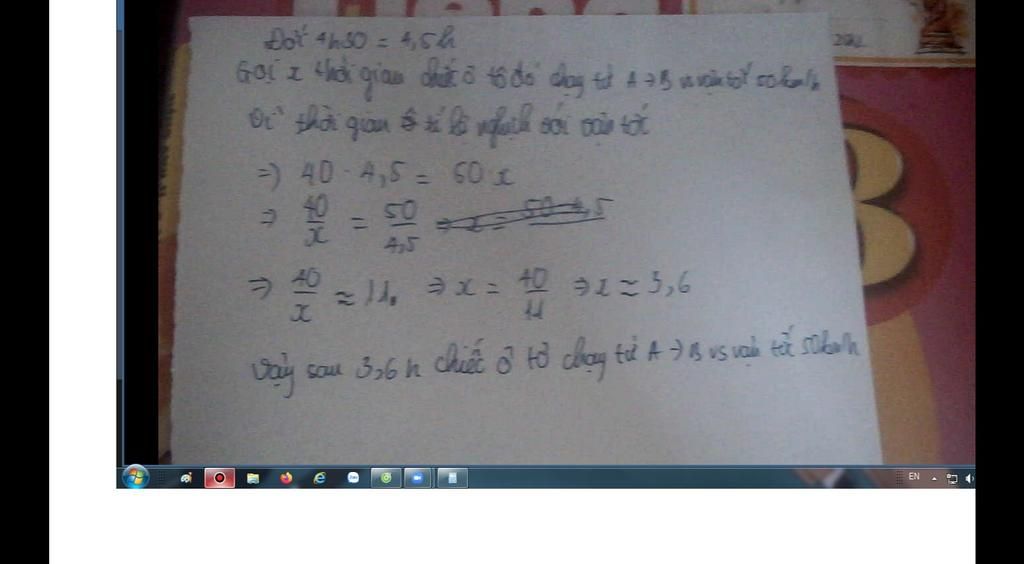 Đổi 4h30 = 4,5h
Gọi x thời gian chiếc ô tô đó chạy từ A → B vs vận tốc 50km/h
Vì thời gian tỉ lệ nghịch với vận tốc
=> 40 . 4,5 = 50 x
=> 40/x = 50/4,5
=> 40/x ≈ 11. => x = 40/11 => x ≈ 3,6
Vậy sau 3,6 h chiếc ô tô chạy từ A → B vs vận tốc 50km/h
EN